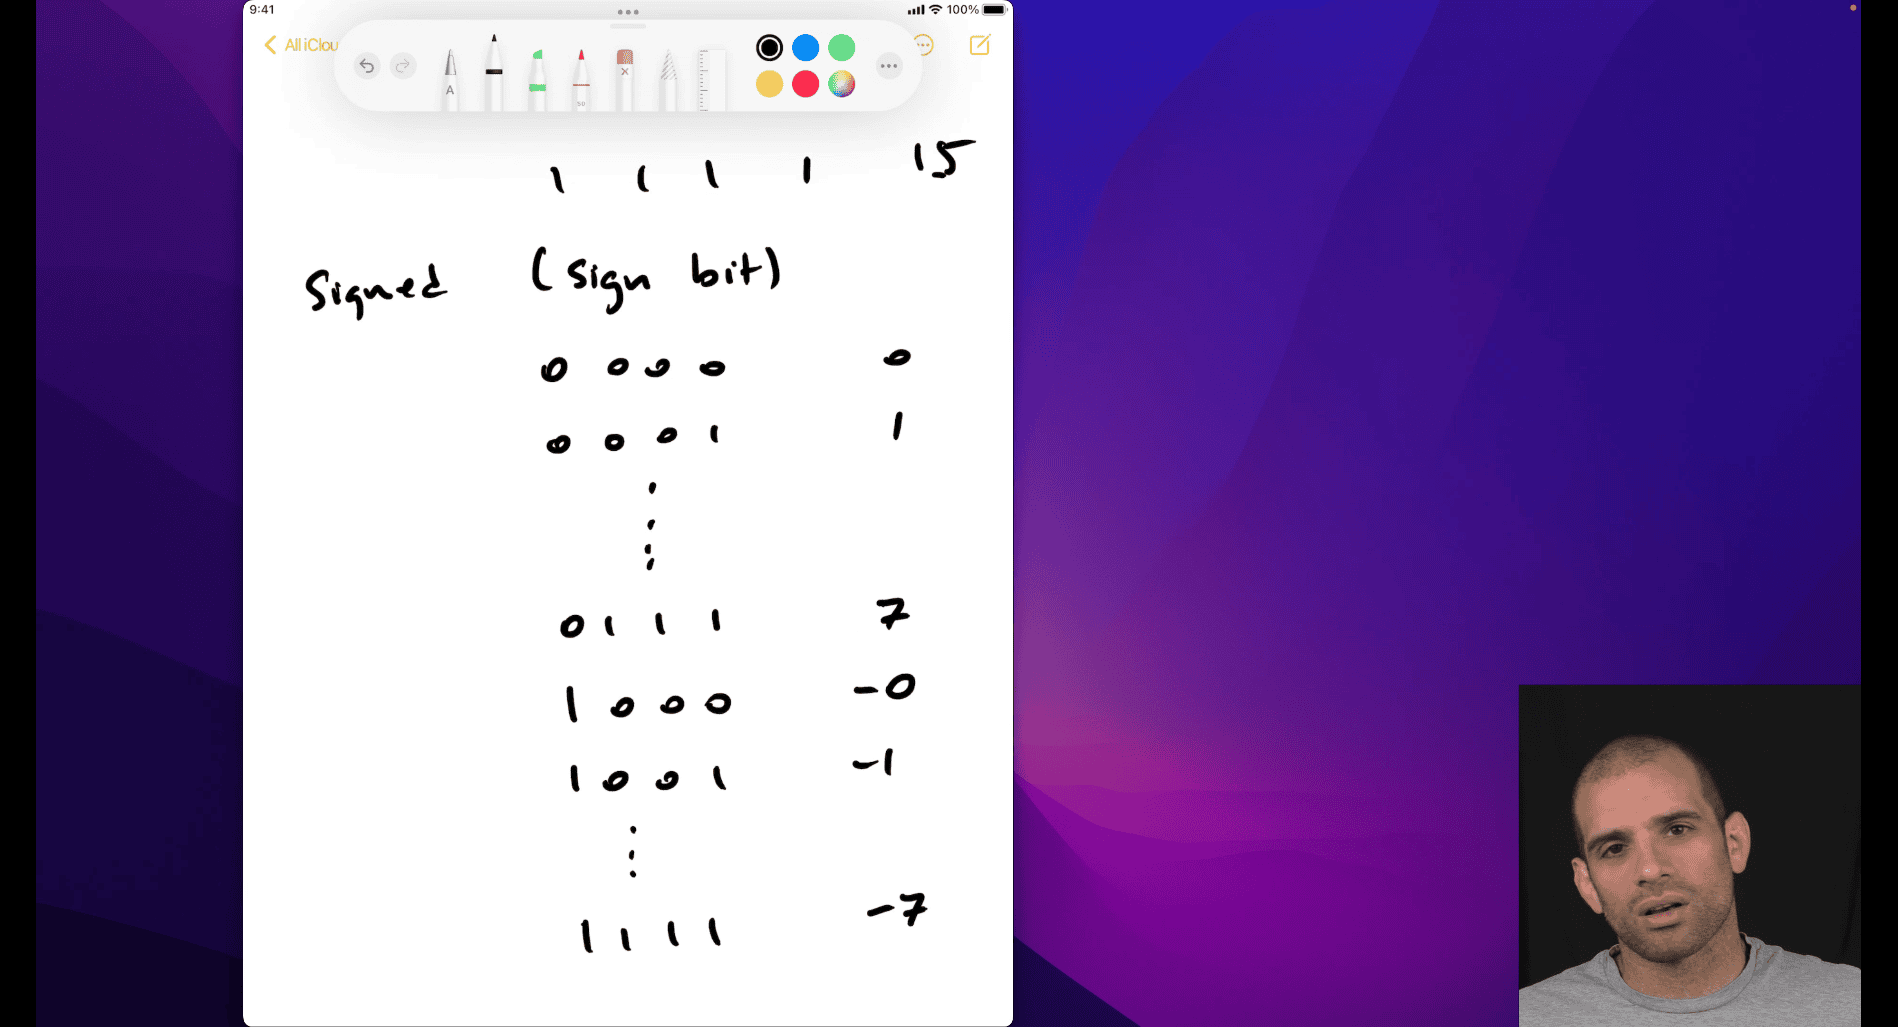 9:41 100%
All iClou
A 50
1 1 1 1 15
Signed (sign bit)
0 0 0 0 0
0 0 0 1 1
0 1 1 1 7
1 0 0 0 -0
1 0 0 1 -1
1 1 1 1 -7